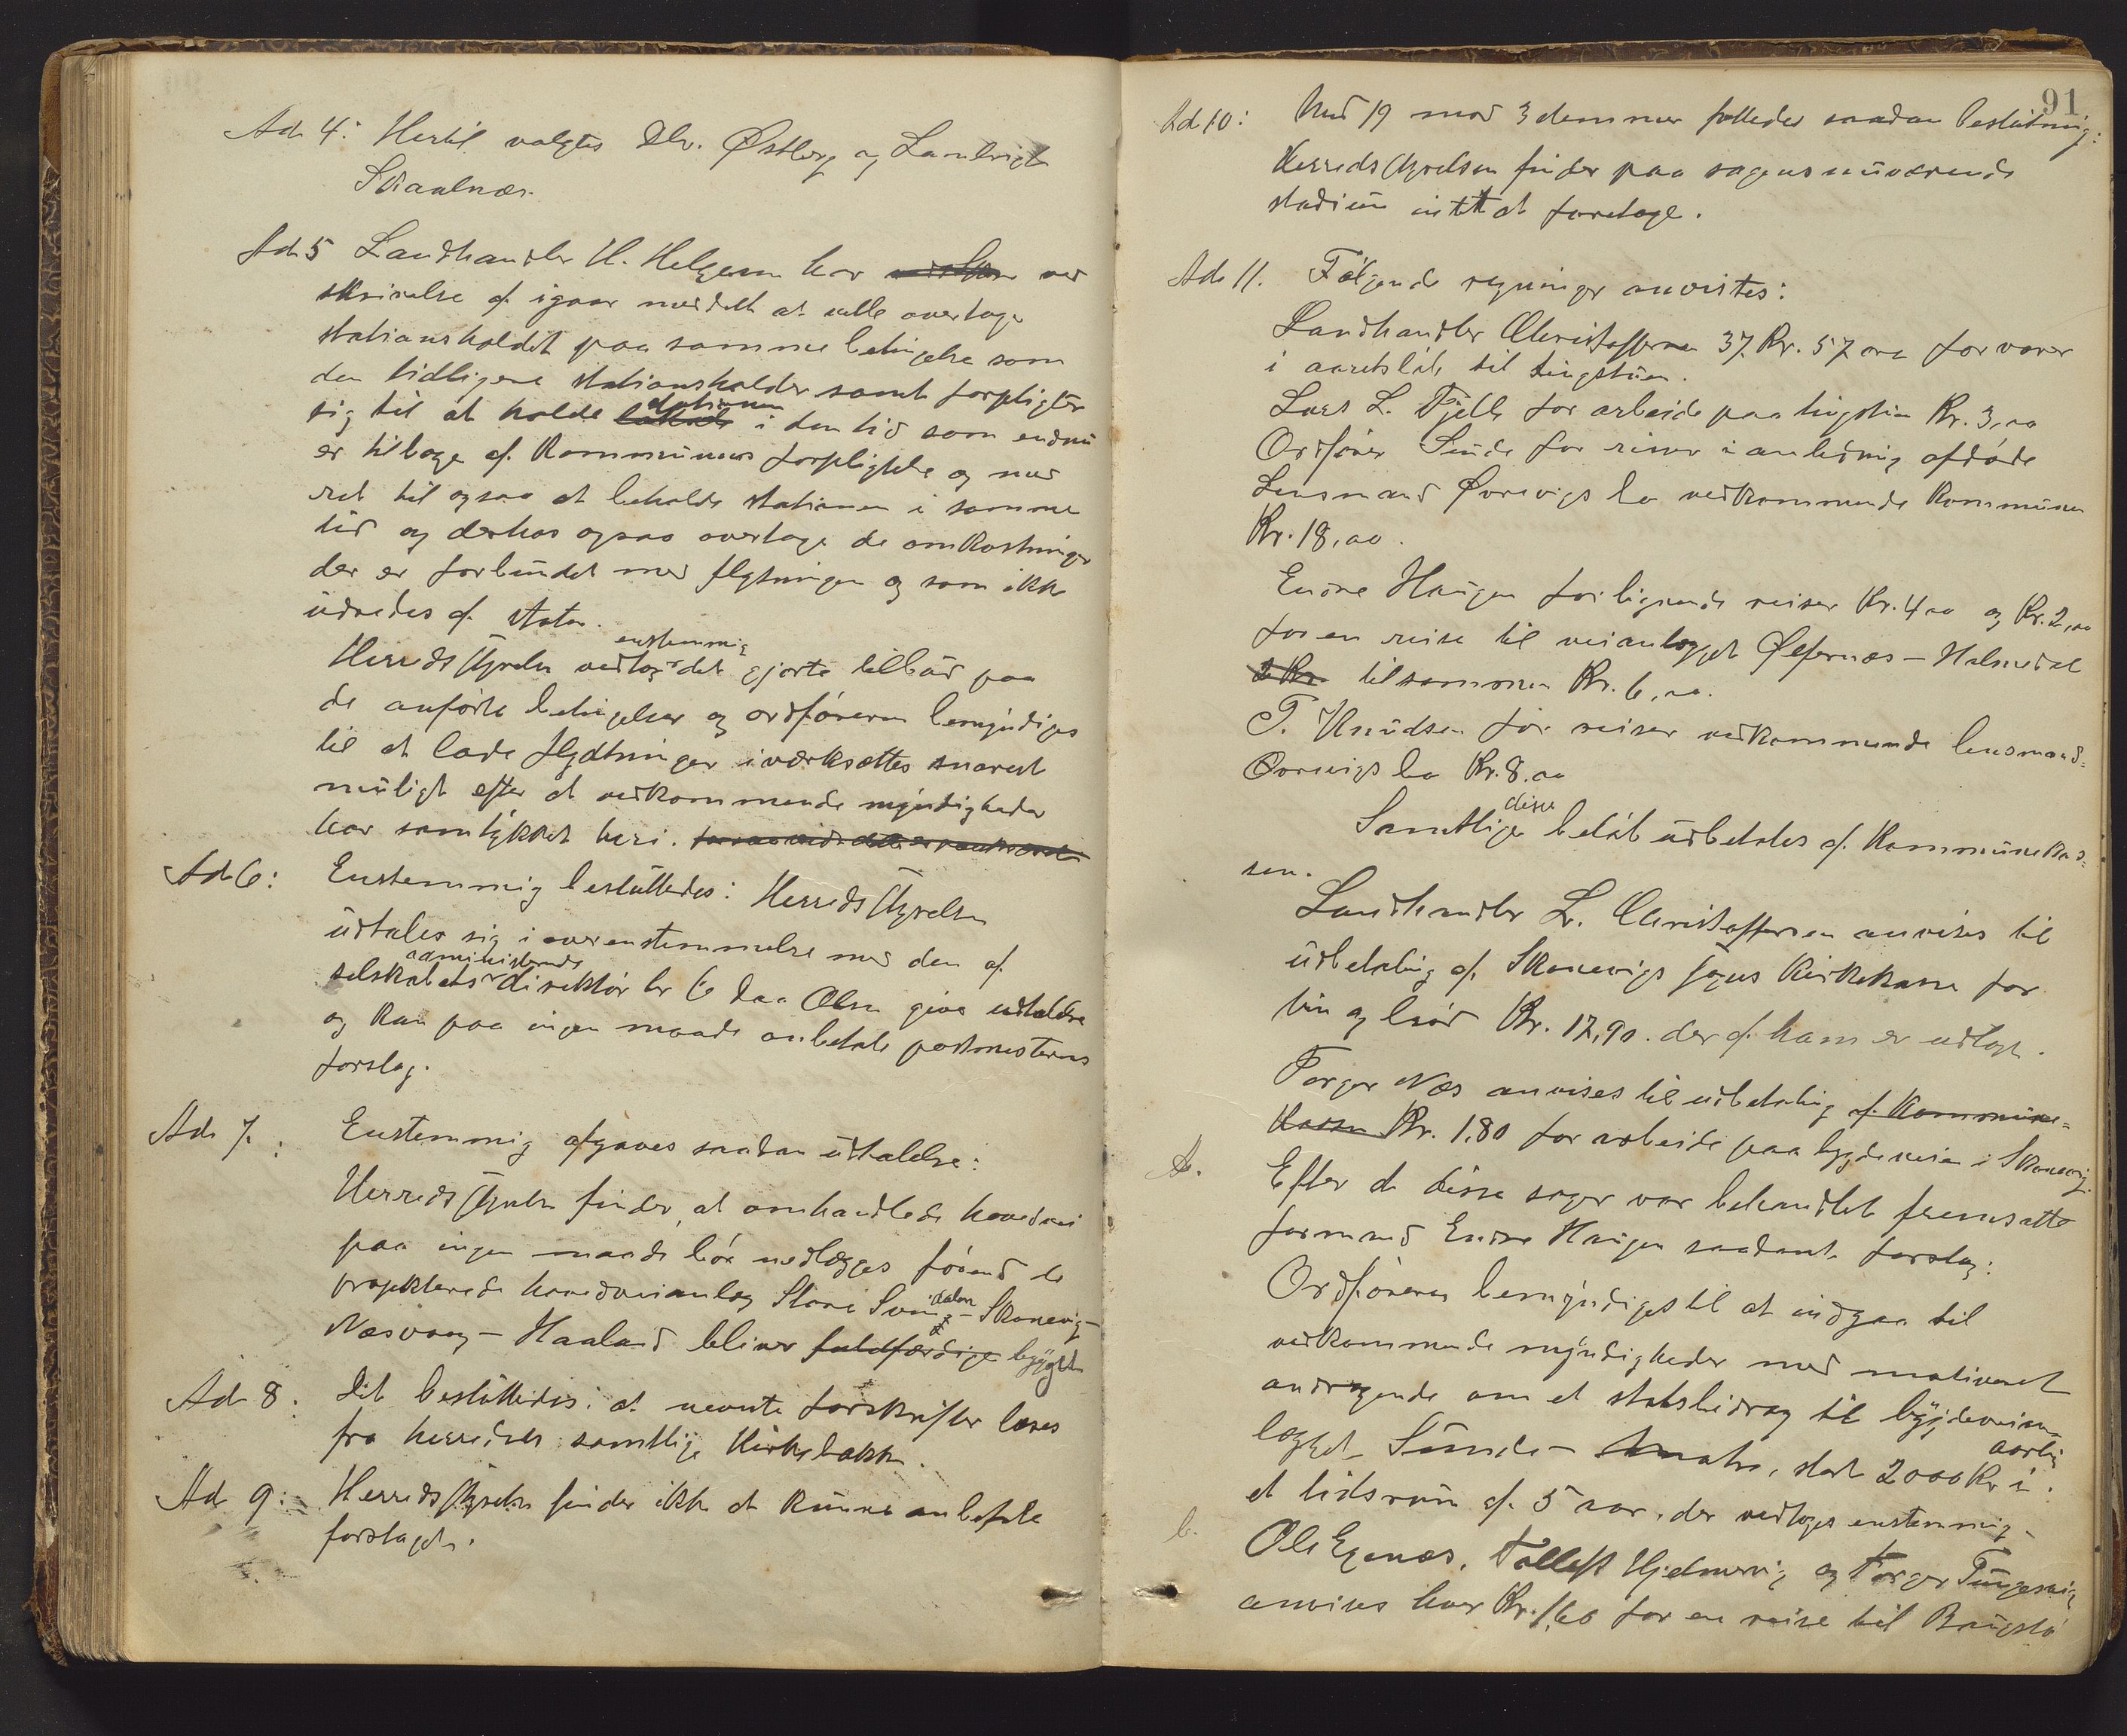 Ad 4: Hertil valgtes Dhr. Østberg og Lambrigt
Skaalnæs.
Ad 5 Landhandler H. Helgesen har ved
skrivelse af igaar meddelt at ville overtage
stationsholdet paa samme betingelse som
den tidligere stationsholder samt forpligter
sig til at holde stationen i den tid som endnu
er tilbage af Kommunens forpligtelse og med
ret til ogsaa at beholde stationen i samme
tid og derhos ogsaa overtage de omkostninger
der er forbundet med flytningen og som ikke
udredes af staten.
Herredsstyrelsen vedtog enstemmig det gjorte tilbud paa
de anførte betingelser og ordføreren bemyndiges
til at lade flytningen iværksættes snarest
muligt efter at vedkommende myndigheder
har samtykket heri.
Ad 6: Enstemmig besluttedes: Herredsstyrelsen
udtaler sig i overenstemmelse med den af
selskabets administrerende direktør hr Chr Olsen givne udtalelse
og kan paa ingen maade anbefale postmesterens
forslag.
Ad 7: Enstemmig afgaves saadan udtalelse:
Herredsstyrelsen finder, at omhandlede hovedvei
paa ingen maade bør nedlægges førend de
projekterede hovedveianlæg Skonevig-
Næsvaag - Haaland bliver fuldfærdige bygget
Ad 8: Det besluttedes: at nevnte forskrifter læses
fra herredets samtlige Kirkebakke.
Ad 9: Herredsstyrelsen finder ikke at kunne anbefale
forslaget.
91
Ad 10: Med 19 mod 3 stemmer fattedes saadan beslutning:
Herredsstyrelsen finder paa sagens nuværende
stadium intet at foretage.
Ad 11. Følgende regninger anvistes:
Landhandler Christoffersen 37 Kr. 57 øre for varer
i aaretsløb til tingstuen.
Lars L. Fjelle for arbeide paa tingstuen Kr. 3,00
Ordfører Sunde for reiser i anledning afdøde
Lensmand Ørevigs bo vedkommende Kommunen
Kr. 18,00.
Endre Haugen for lignende reiser Kr. 4,00 og Kr. 2,00
for en reise til veianlægget Ølfernæs - Halmedal
2 Kr. tilsammen Kr. 6,00.
T. Knudsen for reiser vedkommende lensmand=
Ørevigs bo Kr. 8.00
Samtlige disse beløb udbetales af Kommunekas=
sen.
Landhandler L. Christoffersen anvises til
udbetaling af Skonevigs sogns Kirkekasse for
vin og brød Kr. 17,90. der af ham er udlagt.
Torger Næs anvises til udbetaling af Kommune=
Kassen Kr. 1.80 for arbeide paa bygdeveien i Skonevig.
a. Efter at disse sager var behandlet fremsatte
formand Endre Haugen saadant forslag:
Ordføreren bemyndiges til at indgaa til
vedkommende myndigheder med motiveret
andragende om et statsbidrag til bygdeveian=
lægget Sunde - Matre, stort 2000 Kr aarlig i
et tidsrum af 5 aar. der vedtoges enstemmig.
b. Ole Egenæs, Tollef Hjelmevig og Torger Tungesvig
anvises hver Kr. 1,60 for en reise til Baugstø